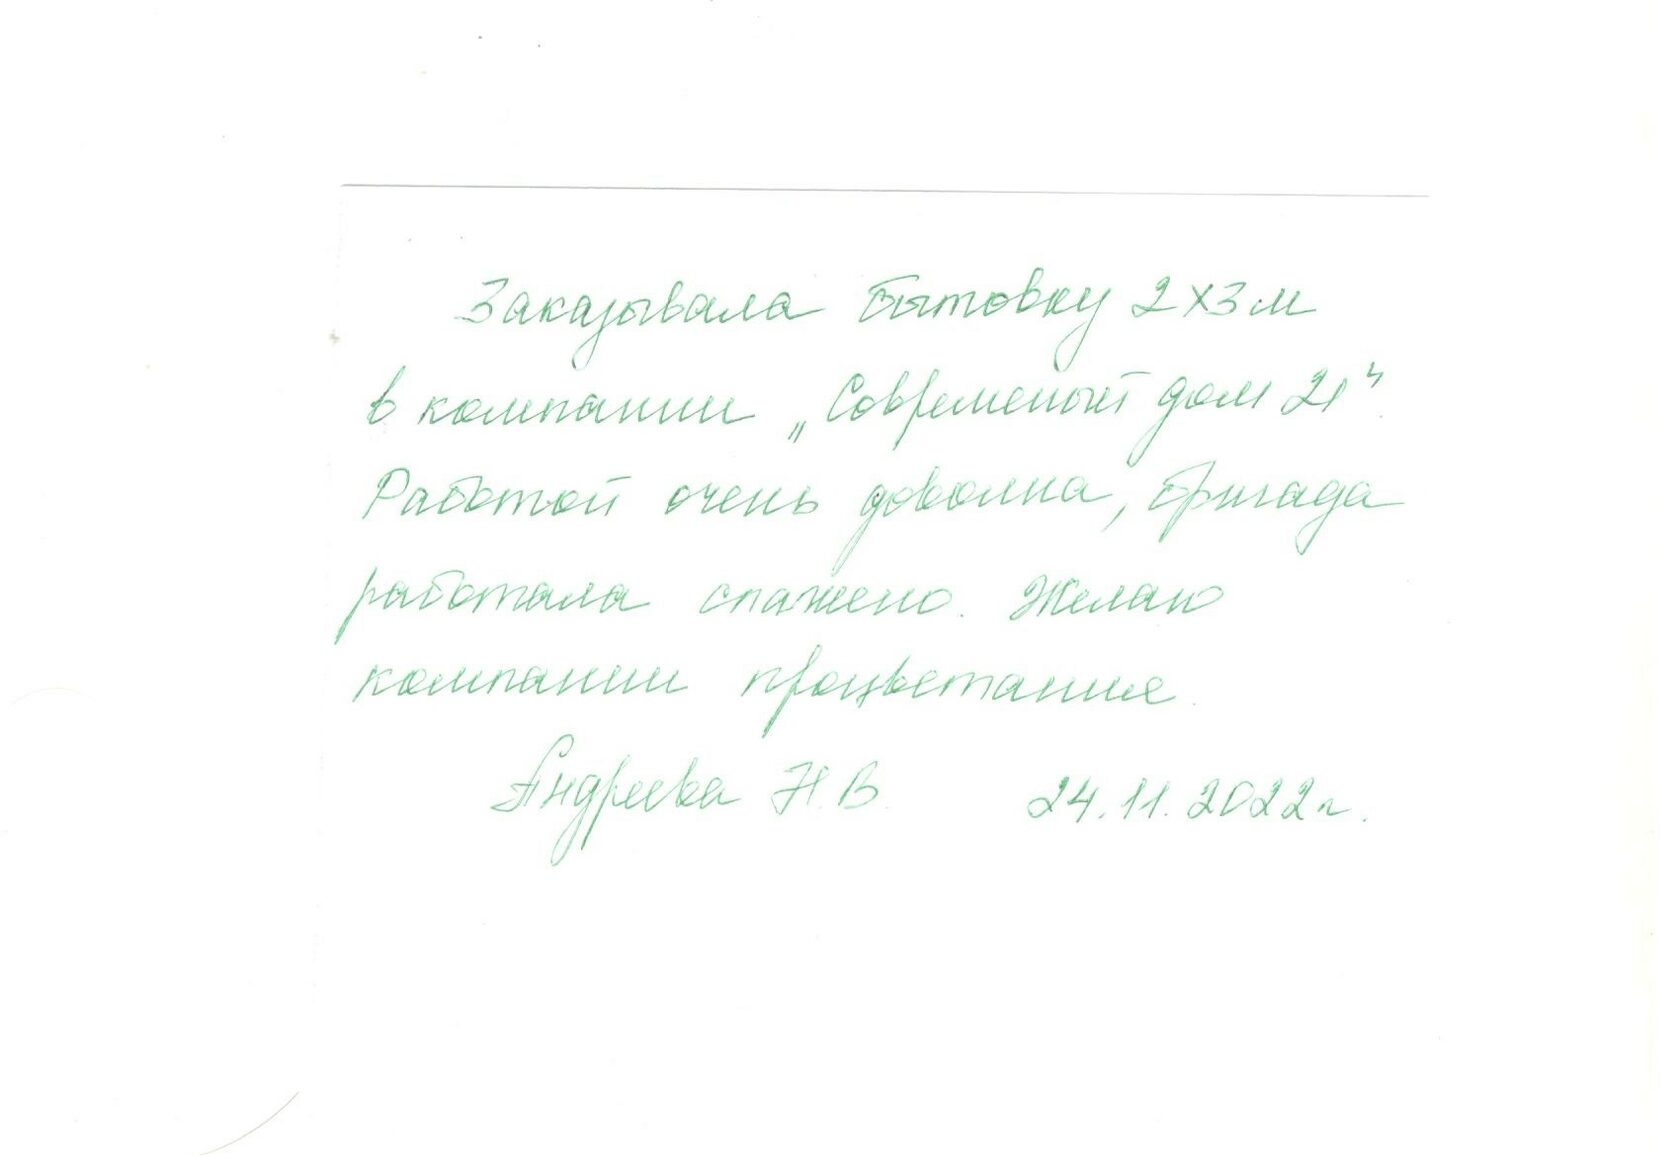 Заказывала бытовку 2х3м
в компании „Современый дом 21"
Работой очень доволна, бригада
работала слажено. Желаю
компании процветание.
Андреева Н.В. 24.11.2022г.